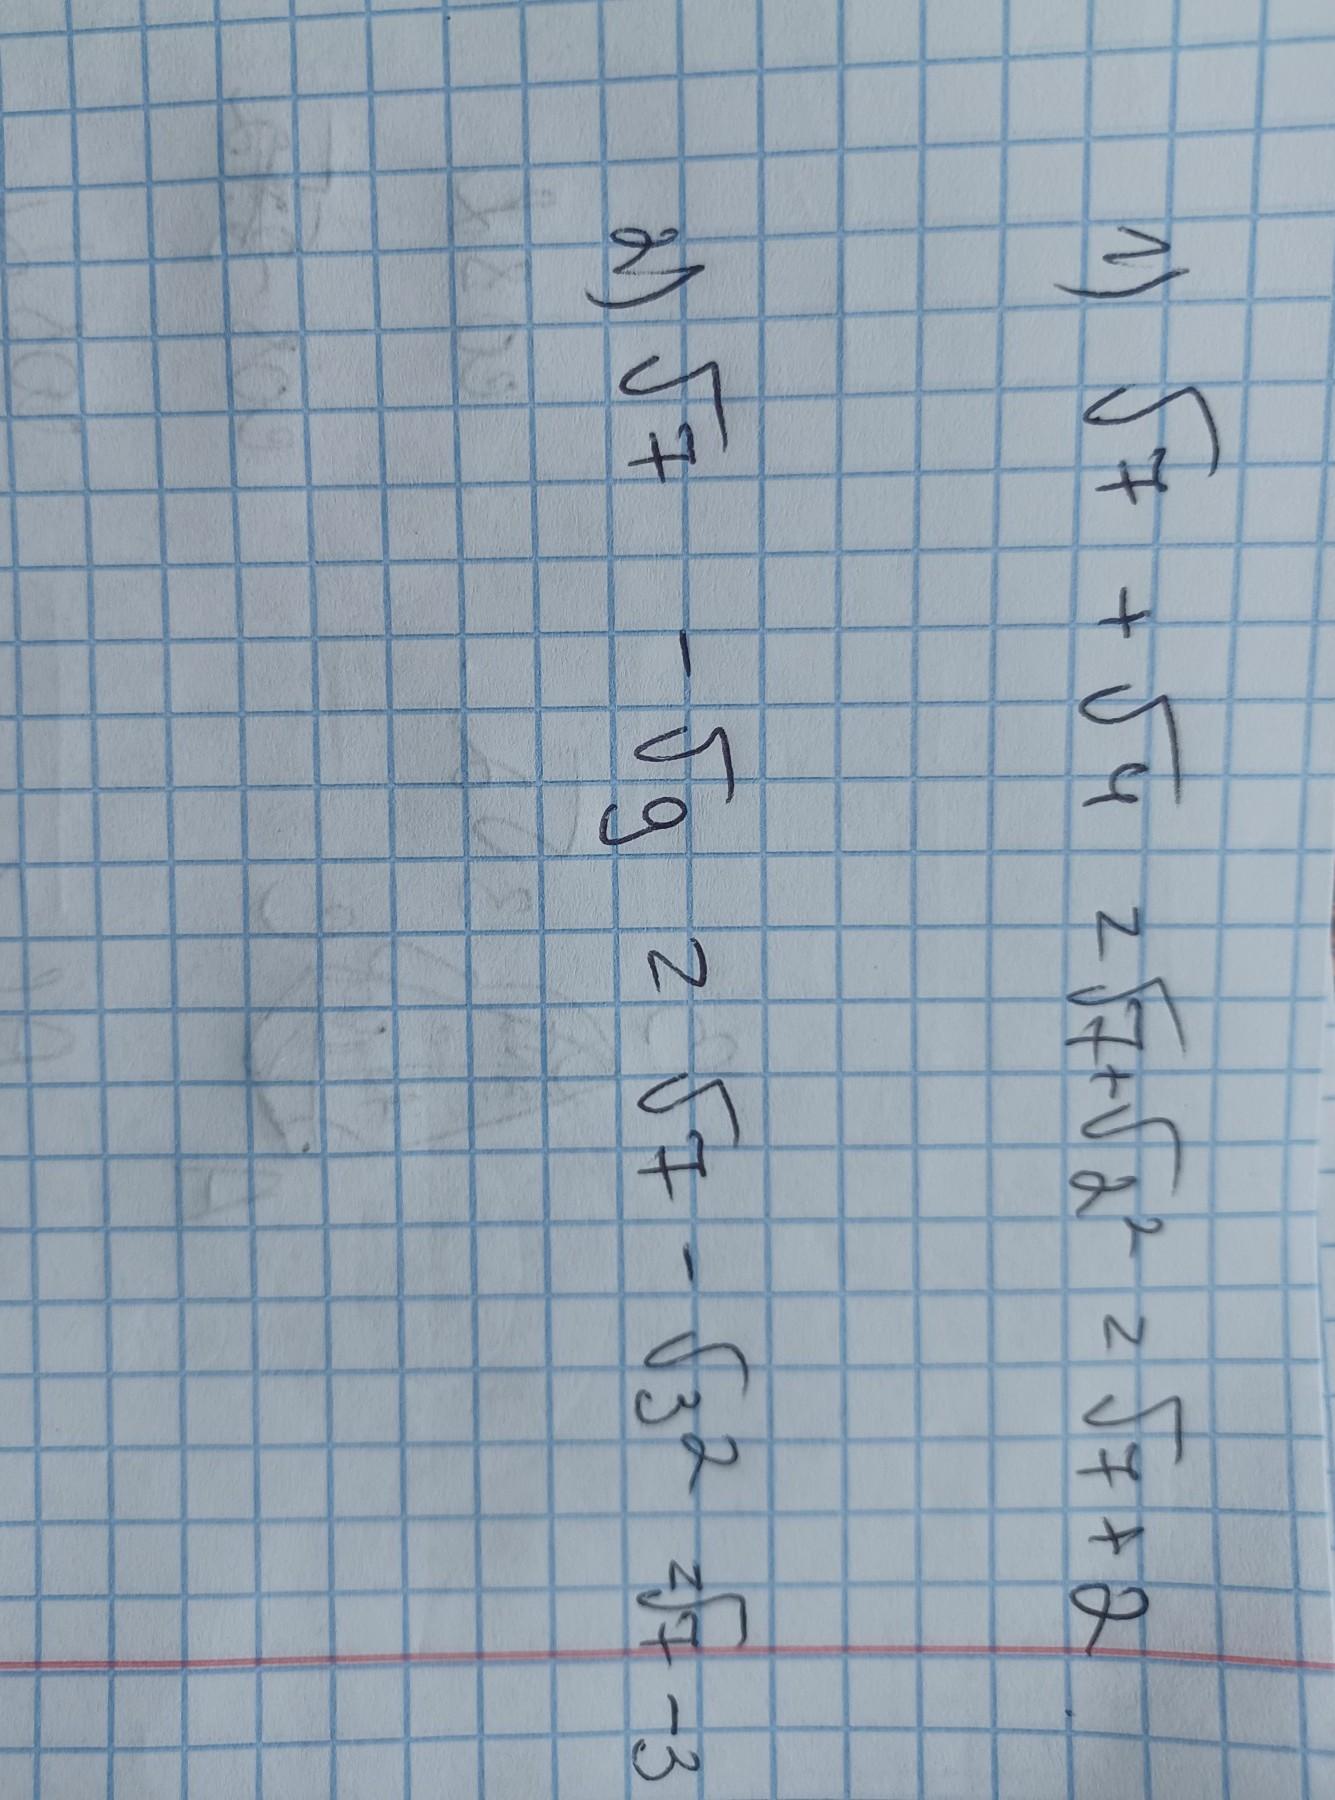 1) √7 + √4 = √7 + √2² = √7 + 2
2) √7 - √9 = √7 - √3² = √7 - 3